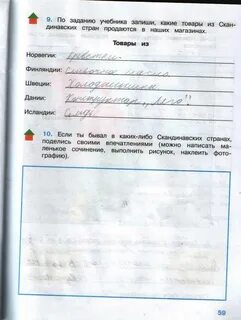 9. По заданию учебника запиши, какие товары из Скан-
динавских стран продаются в наших магазинах.
Товары из
Норвегии:
Финляндии: Сливочное масло
Швеции: Холодильники
Дании: Конструктор „Лего"
Исландии:
10. Если ты бывал в каких-либо Скандинавских странах,
поделись своими впечатлениями (можно написать ма-
ленькое сочинение, выполнить рисунок, наклеить фото-
графию).
59